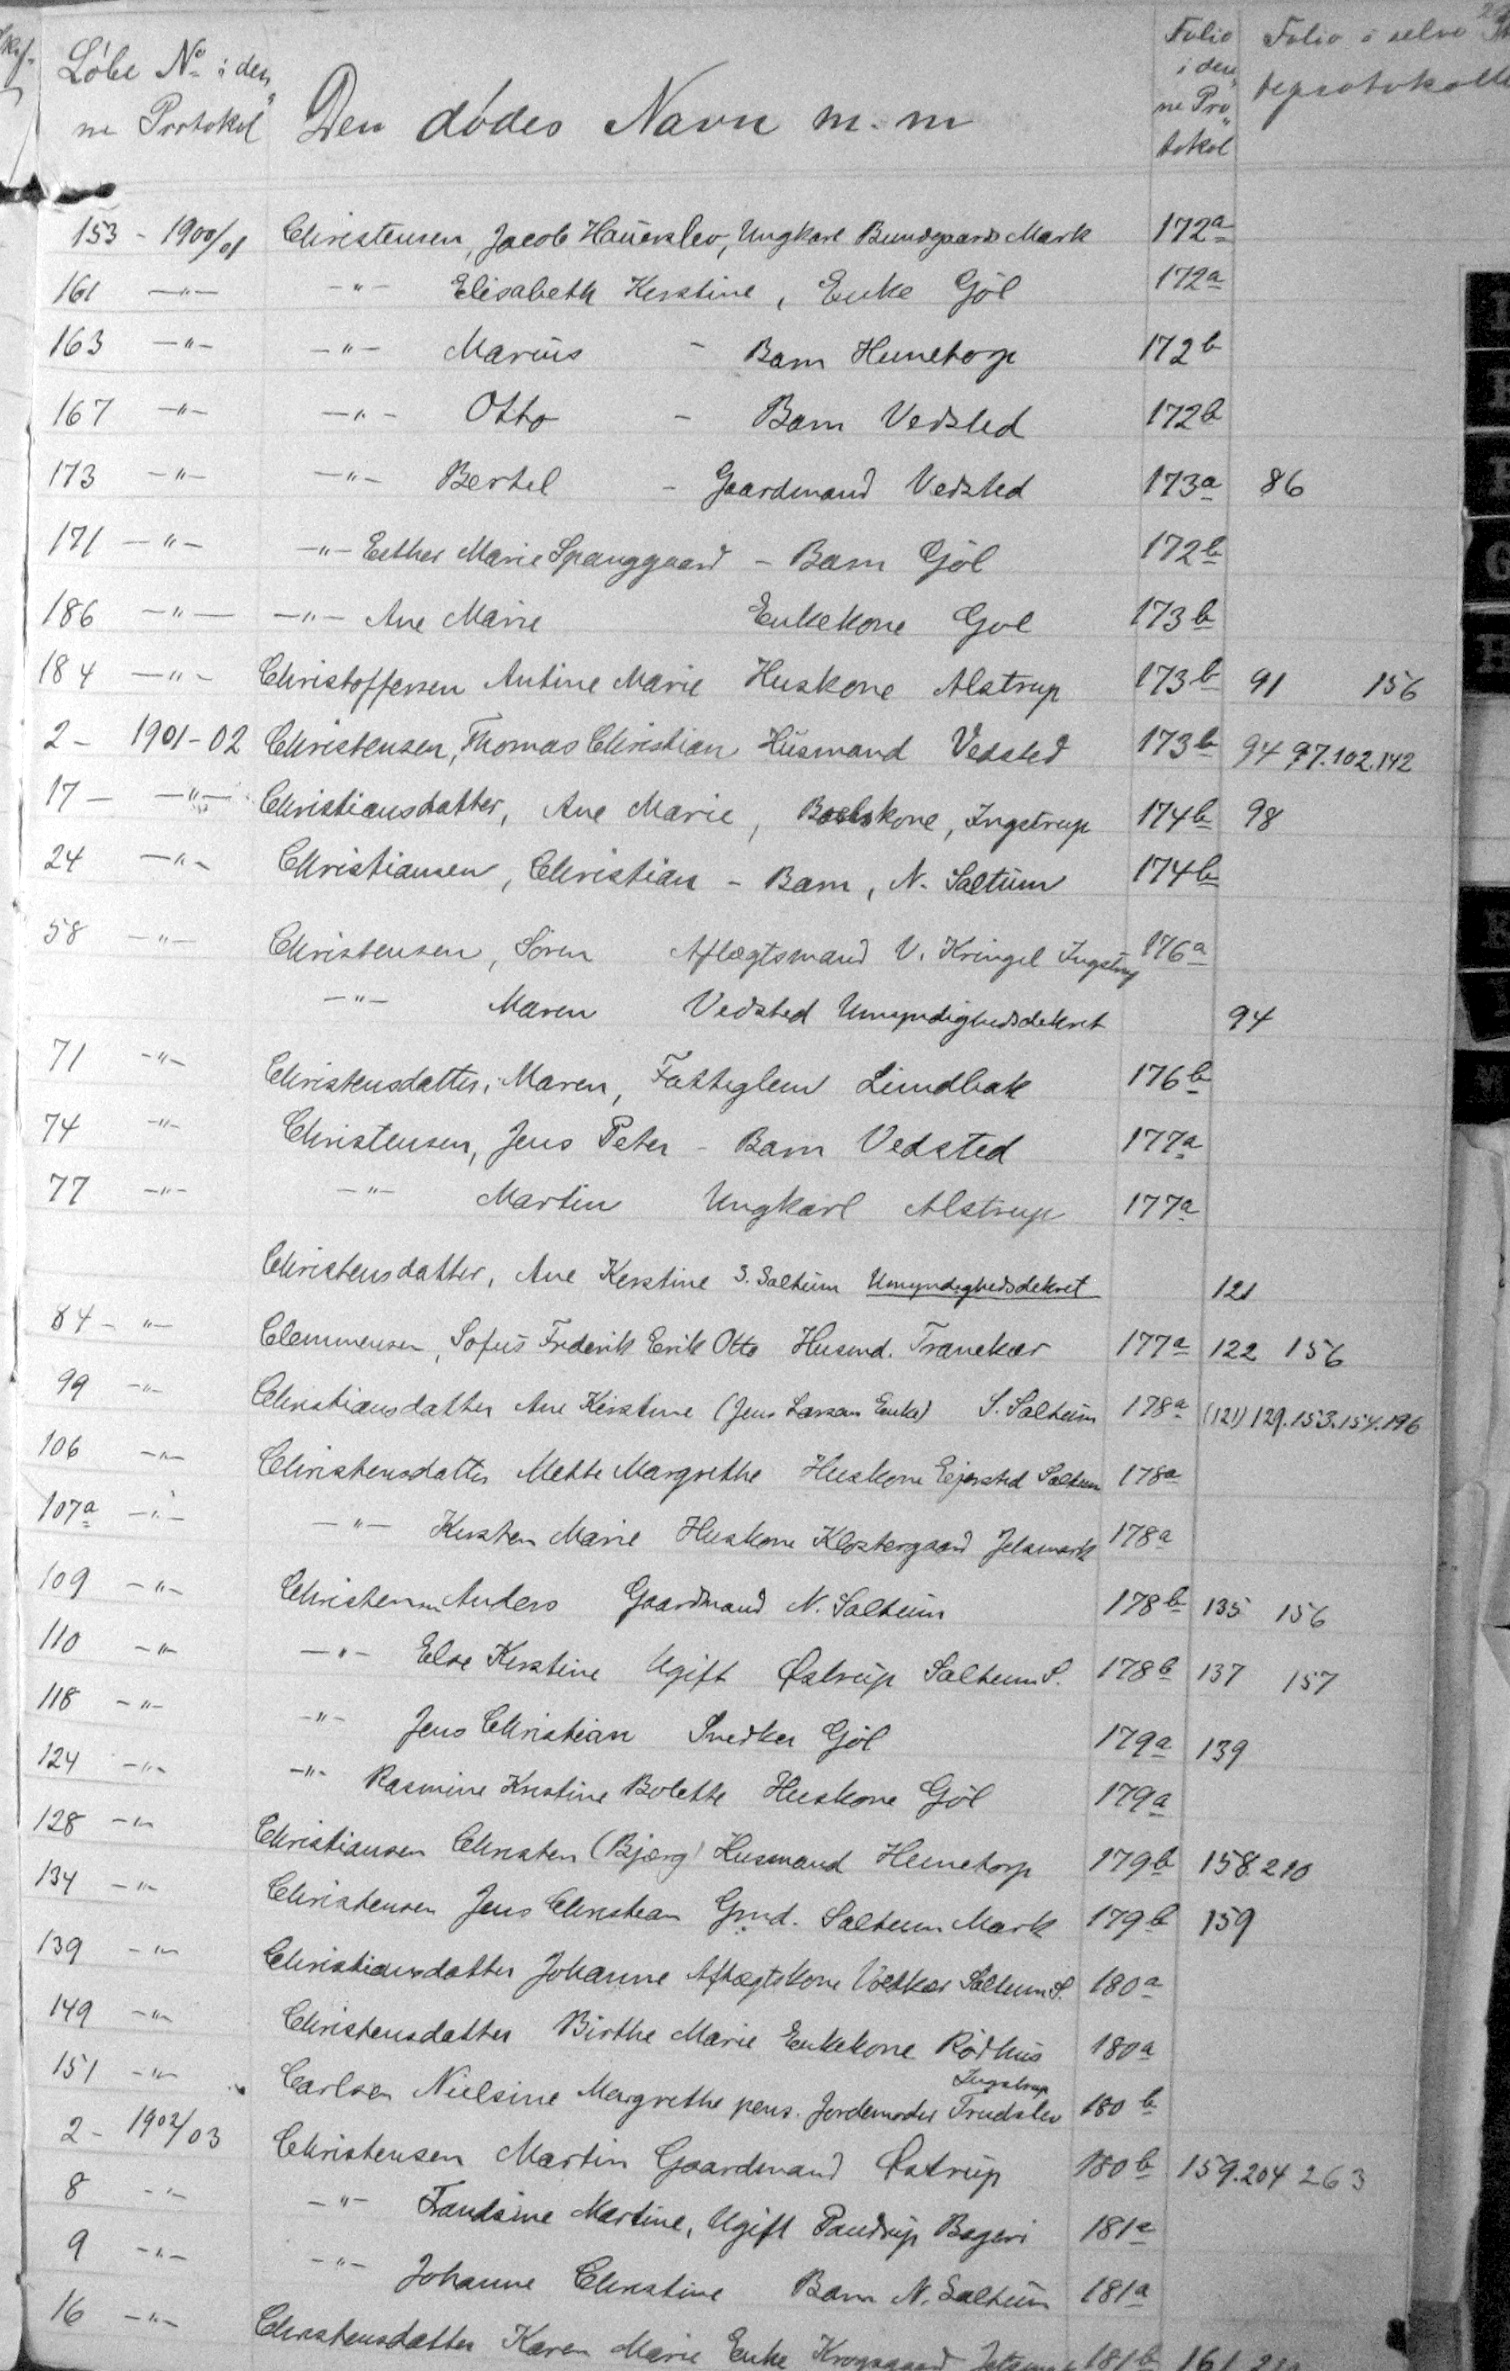 Löbe № i den
ne Protokol
Den dödes Navn m. m
Folio
i den
ne Pro
tokol
Folio i selve
153 - 1900/01 Christensen, Jacob Hauerslev, Ungkarl Bundgaards Mark 172a
161 -"- -"- Elisabeth Kirstine, Enke Göl 172a
163 -"- -"- Marius - Barn Hunetorp 172b
167 -"- -"- Otto - Barn Vedsted 172b
173 -"- -"- Bertel - Gaardmand Vedsted 173a 86
171 -"- -"- Esther Marie Spanggaard - Barn Göl 172b
186 -"- -"- Ane Marie Enkekone Gol 173b
184 -"- Christoffersen Antine Marie Huskone Alstrup 173b 91 156
2 - 1901-02 Christensen, Thomas Christian Husmand Vedsted 173b 94 97.102.142
17 - -"- Christiansdatter, Ane Marie, Boelskone, Ingstrup 174b 98
24 -"- Christiansen, Christian - Barn, N. Saltum 174b
58 -"- Christensen, Sören Aflægtsmand V. Kringel Ingstrup 176a
-"- Maren Vedsted Umyndighedsdekret 94
71 -"- Christensdatter, Maren, Fattiglem Limdbak 176b
74 -"- Christensen, Jens Peter - Barn Vedsted 177a
77 -"- -"- Martin Ungkarl Alstrup 177a
Christensdatter, Ane Kirstine S. Saltum Umyndighedsdekret 121
84 - -"- Clemmensen, Sofus Frederik Erik Otto Husmd. Tranekær 177a 122 156
99 -"- Christiansdatter Ane Kirstine (Jens Larsens Enke) S. Saltum 178a (121) 129.153.154.196
106 -"- Christensdatter Mette Margrethe Huskone Ejersted Saltum 178a
107a -"- -"- Kirsten Marie Huskone Klostergaard Jetsmark 178a
109 -"- Christensen Anders Gaardmand N. Saltum 178b 135 156
110 -"- -"- Else Kirstine Ugift Østrup Saltum S. 178b 137 157
118 -"- -"- Jens Christian Snedker Göl 179a 139
124 -"- -"- Rasmine Kristine Bolette Huskone Göl 179a
128 -"- Christiansen Christen (Bjerg) Husmand Hunetorp 179b 158.210
134 -"- Christensen Jens Christian Gmd. Saltum Mark 179b 159
139 -"- Christiansdatter Johanne Aflægtskone Saltum S. 180a
149 -"- Christensdatter Birthe Marie Enkekone Rödhus 180a
151 -"- Carlsen Nielsine Margrethe pens. Jordemoder Trudslev Ingstrup 180b
2 - 1902/03 Christensen Martin Gaardmand Østrup 180b 159.204 263
8 -"- -"- Frandsine Martine, Ugift Pandrup Bageri 181a
9 -"- -"- Johanne Christine Barn N. Saltum 181a
16 -"- Christensdatter Karen Marie Enke Krogsgaard 181b 161